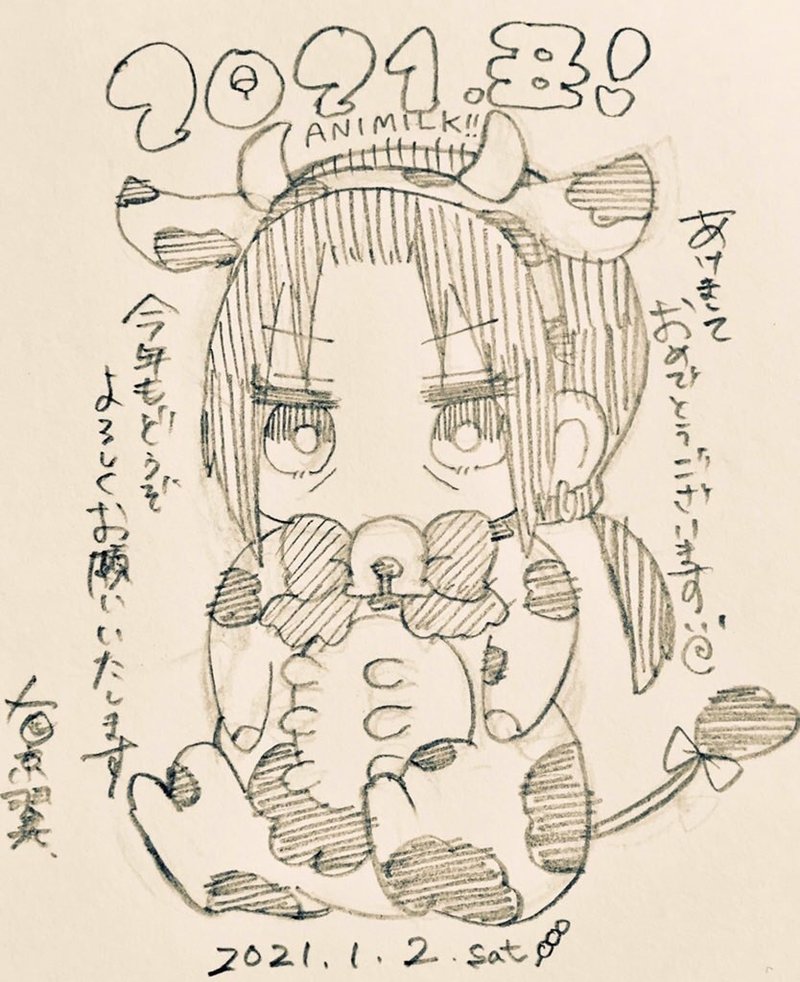 2021.丑!
ANIMILK!!
あけまして
おめでとうございます
今年もどうぞ
よろしくお願いいたします
2021.1.2.sat